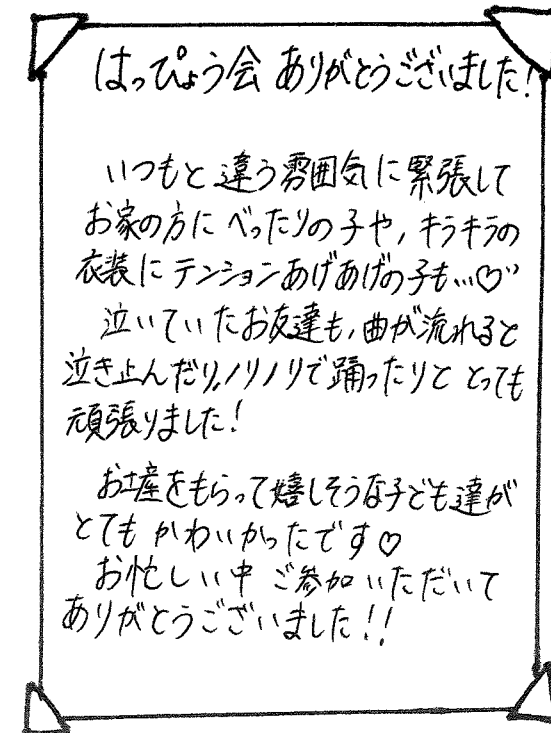 はっぴょう会 ありがとうございました!
いつもと違う雰囲気に緊張して
お家の方に べったりの子や、キラキラの
衣装に テンションあげあげの子も…♡''
泣いていたお友達も、曲が流れると
泣き止んだり、ノリノリで踊ったりと とっても
頑張りました!
お土産をもらって嬉しそうな子ども達が
とても かわいかったです♡
お忙しい中 ご参加いただいて
ありがとうございました!!